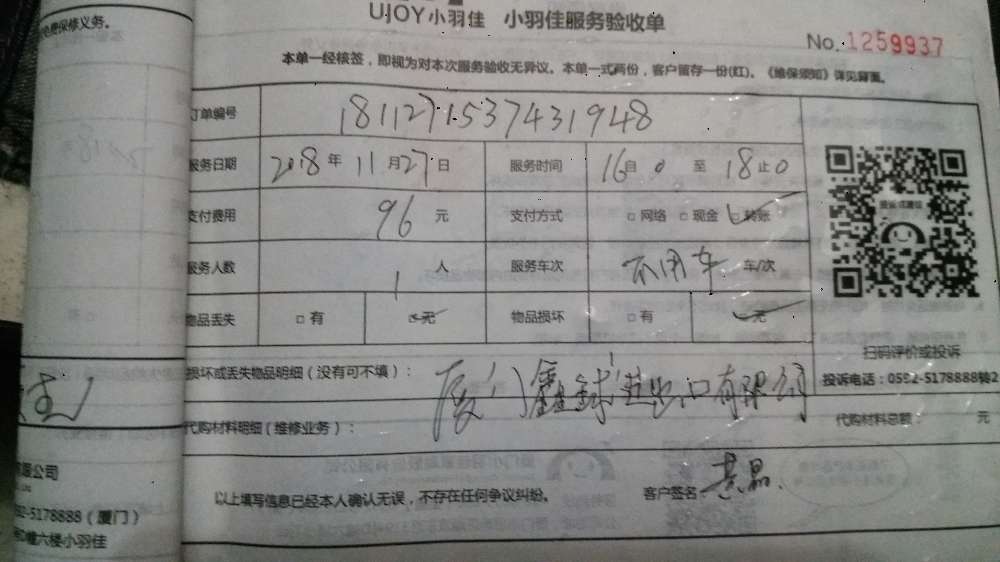 免费保修义务。
UJOY小羽佳 小羽佳服务验收单
No. 1259937
本单一经核签，即视为对本次服务验收无异议。本单一式两份，客户留存一份(红)。《维保须知》详见背面。
订单编号 1811271537431948
服务日期 2018年11月27日 服务时间 16自0至18止0
支付费用 96元 支付方式 □网络 □现金 ☑转账
服务人数 1人 服务车次 不用车 车/次
物品丢失 □有 ☑无 物品损坏 □有 ☑无
扫码评价或投诉
投诉电话：0592-5178888转2
损坏或丢失物品明细（没有可不填）： 厦门鑫球进出口有限公司
代购材料明细（维修业务）： 代购材料总额： 元
以上填写信息已经本人确认无误，不存在任何争议纠纷。 客户签名：
限公司
592-5178888（厦门）
幢六楼小羽佳